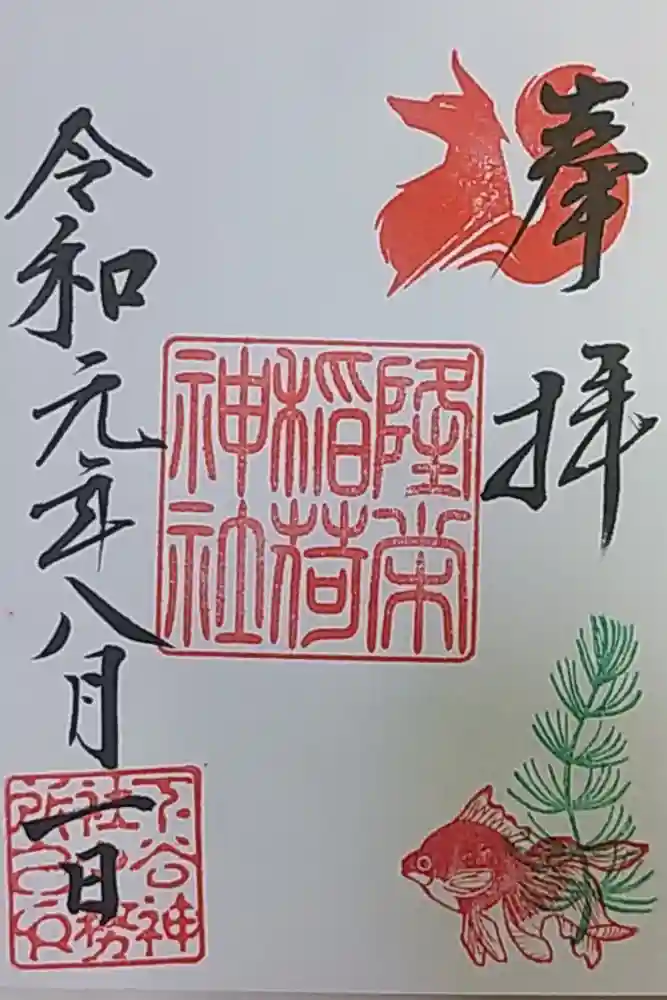 奉拝
隆栄
稲荷
神社
令和元年八月一日
下谷神
社社務
所之印